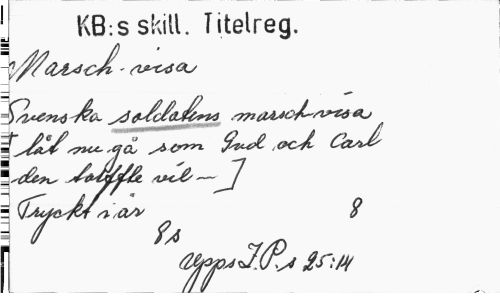 KB:s skill. Titelreg.
Marsch-visa
Svenska soldatens marsch-visa
[ låt nu gå som Gud och Carl
den tolffte vil - ]
Tryckt i år 8
8 s
Upps I.P.s 25:14